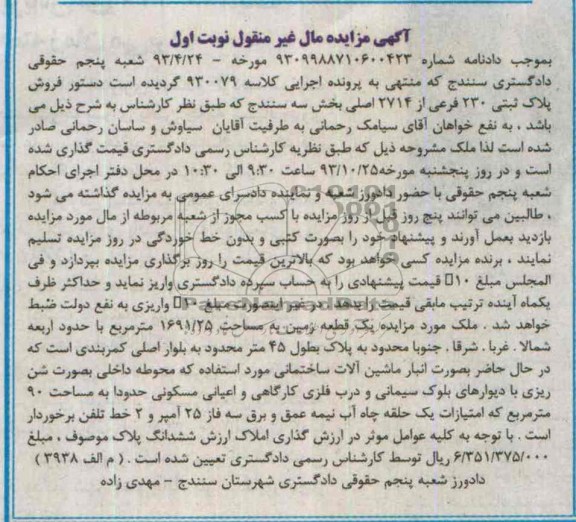 آگهی مزایده مال غیر منقول نوبت اول
بموجب دادنامه شماره ۹۳۰۹۹۸۸۷۱۰۶۰۰۴۲۳ مورخه - ۹۳/۴/۲۴ شعبه پنجم حقوقی
دادگستری سنندج که منتهی به پرونده اجرایی کلاسه ۹۳۰۰۷۹ گردیده است دستور فروش
پلاک ثبتی ۲۳۰ فرعی از ۲۷۱۴ اصلی بخش سه سنندج که طبق نظر کارشناس به شرح ذیل می
باشد ، به نفع خواهان آقای سیامک رحمانی به طرفیت آقایان سیاوش و ساسان رحمانی صادر
شده است لذا ملک مشروحه ذیل که طبق نظریه کارشناس رسمی دادگستری قیمت گذاری شده
است و در روز پنجشنبه مورخه۹۳/۱۰/۲۵ ساعت ۹:۳۰ الی ۱۰:۳۰ در محل دفتر اجرای احکام
شعبه پنجم حقوقی با حضور دادورز شعبه و نماینده دادسرای عمومی به مزایده گذاشته می شود
، طالبین می توانند پنج روز قبل از روز مزایده با کسب مجوز از شعبه مربوطه از مال مورد مزایده
بازدید بعمل آورند و پیشنهاد خود را بصورت کتبی و بدون خط خوردگی در روز مزایده تسلیم
نمایند ، برنده مزایده کسی خواهد بود که بالاترین قیمت را روز برگذاری مزایده بپردازد و فی
المجلس مبلغ ۱۰٪ قیمت پیشنهادی را به حساب سپرده دادگستری واریز نماید و حداکثر ظرف
یکماه آینده ترتیب مابقی قیمت را بدهد . در غیر اینصورت مبلغ ۱۰٪ واریزی به نفع دولت ضبط
خواهد شد . ملک مورد مزایده یک قطعه زمین به مساحت ۱۶۹۱/۲۵ مترمربع با حدود اربعه
شمالا . غربا . شرقا . جنوبا محدود به پلاک بطول ۴۵ متر محدود به بلوار اصلی کمربندی است که
در حال حاضر بصورت انبار ماشین آلات ساختمانی مورد استفاده که محوطه داخلی بصورت شن
ریزی با دیوارهای بلوک سیمانی و درب فلزی کارگاهی و اعیانی مسکونی حدودا به مساحت ۹۰
مترمربع که امتیازات یک حلقه چاه آب نیمه عمق و برق سه فاز ۲۵ آمپر و ۲ خط تلفن برخوردار
است . با توجه به کلیه عوامل موثر در ارزش گذاری املاک ارزش ششدانگ پلاک موصوف ، مبلغ
۶/۳۵۱/۳۷۵/۰۰۰ ریال توسط کارشناس رسمی دادگستری تعیین شده است . ( م الف ۳۹۳۸ )
دادورز شعبه پنجم حقوقی دادگستری شهرستان سنندج - مهدی زاده